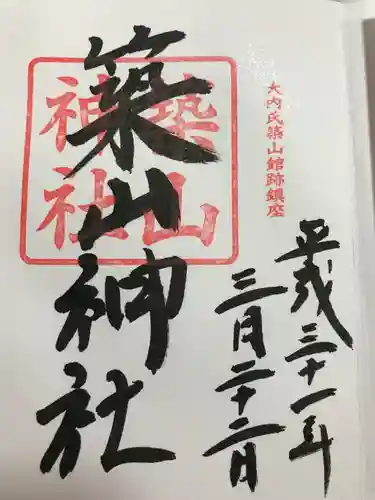 大内氏築山館跡鎮座
平成三十一年
三月二十二月
築山神社
築山
神社